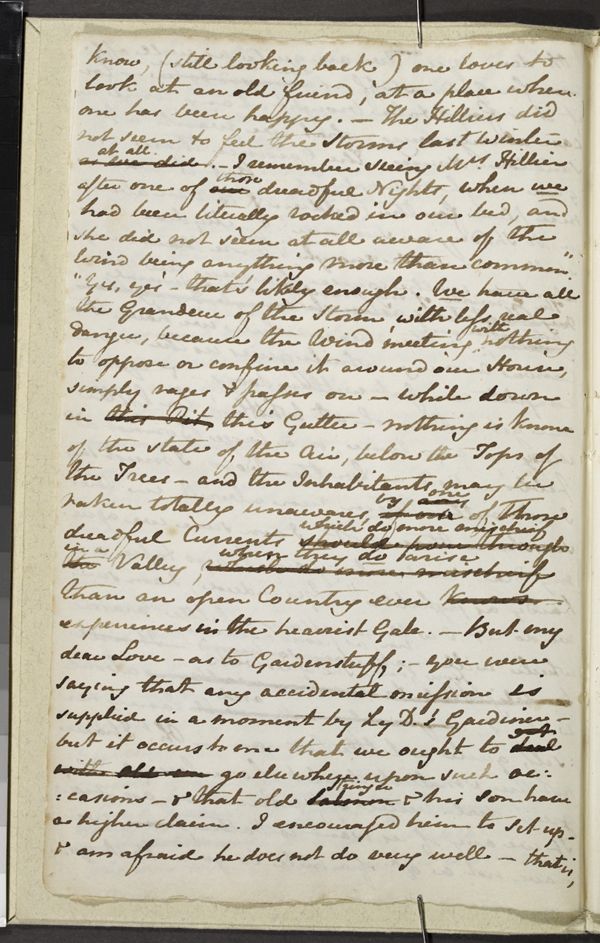 know, (still looking back) one loves to
look at an old friend, at a place where
one has been happy. — The Hilliers did
not seem to feel the Storms last Winter
at all
as we did. — I remember seeing Mrs Hillier
those
after one of our dreadful Nights, when we
had been literally rocked in our bed, and
she did not seem at all aware of the
Wind being anything more than common."
"Yes, yes — that's likely enough. We have all
the Grandeur of the Storm, with less real
Danger, because the Wind meeting with nothing
to oppose or confine it around our House,
simply rages & passes on — while down
in this Pit, this Gutter — nothing is known
of the state of the Air, below the Tops of
the Trees — and the Inhabitants may be
by one
taken totally unawares, of those
which do more mischief
dreadful Currents should pour through
in a when they do arise
the Valley, which do more mischief
than an open Country ever knows
experiences in the heaviest Gale. — But my
dear Love — as to Gardenstuff; — you were
saying that any accidental omission is
supplied in a moment by Ly D.'s Gardiner —
but it occurs to me that we ought to not deal
with go elsewhere upon such oc:
Stringer
:casions — & that old Salmon & his son have
a higher claim. I encouraged him to set up —
& am afraid he does not do very well — that is,